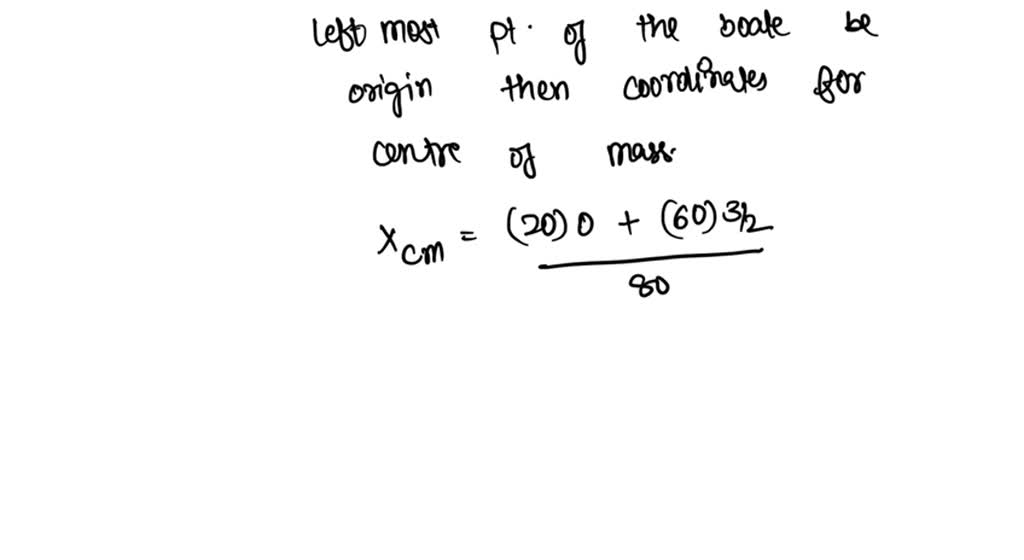 left most pt. of the boate be
origin then coordinates for
centre of mass.
Xcm = (20) 0 + (60) 3/2
80